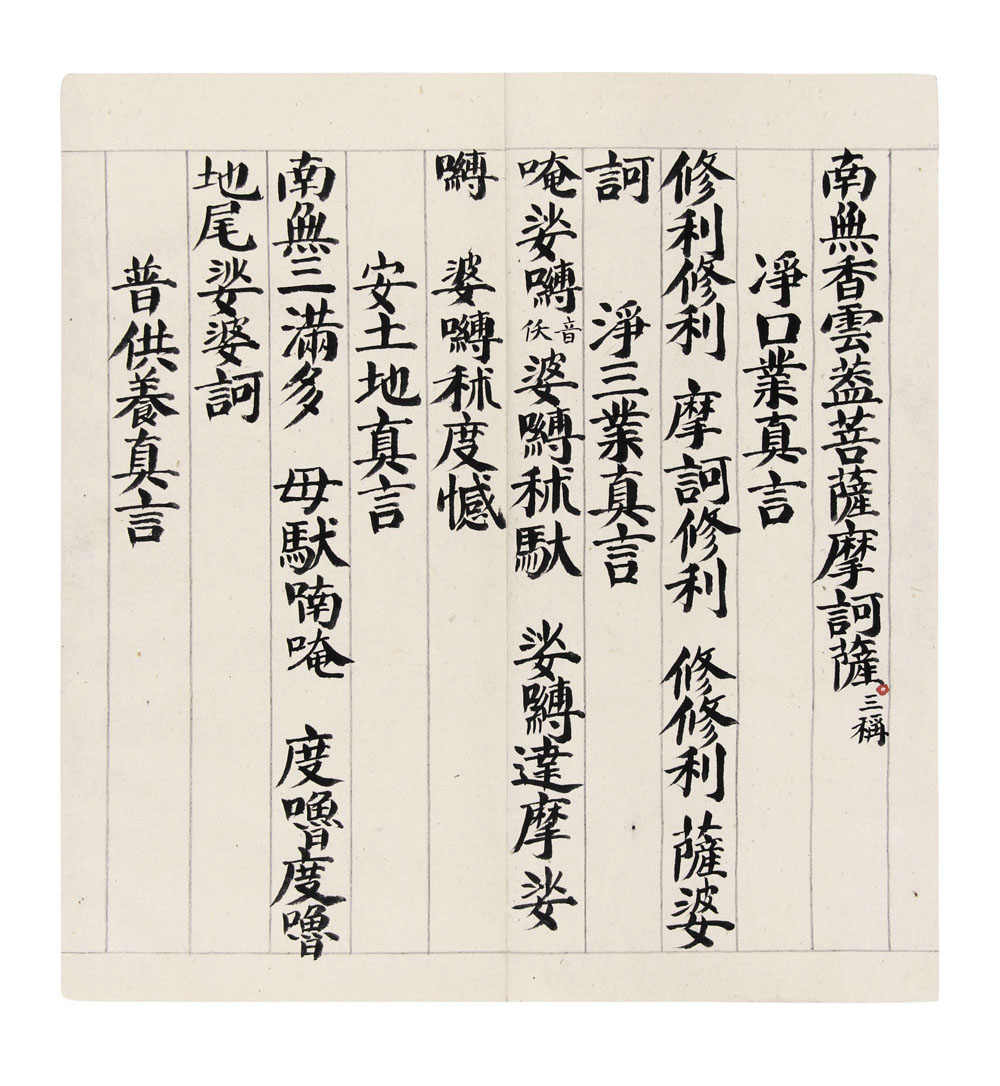 南無香雲葢菩薩摩訶薩三稱
凈口業真言
修利修利 摩訶修利 修修利 薩婆
訶 淨三業真言
唵娑嚩音伕婆嚩秫馱 娑嚩達摩娑
嚩 婆嚩秫度憾
安土地真言
南無三滿多 毋馱喃唵 度嚕度嚕
地尾娑婆訶
普供養真言